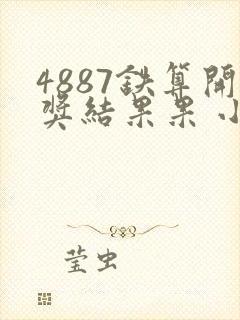 4887鉄算開
奖結果果小
莹虫